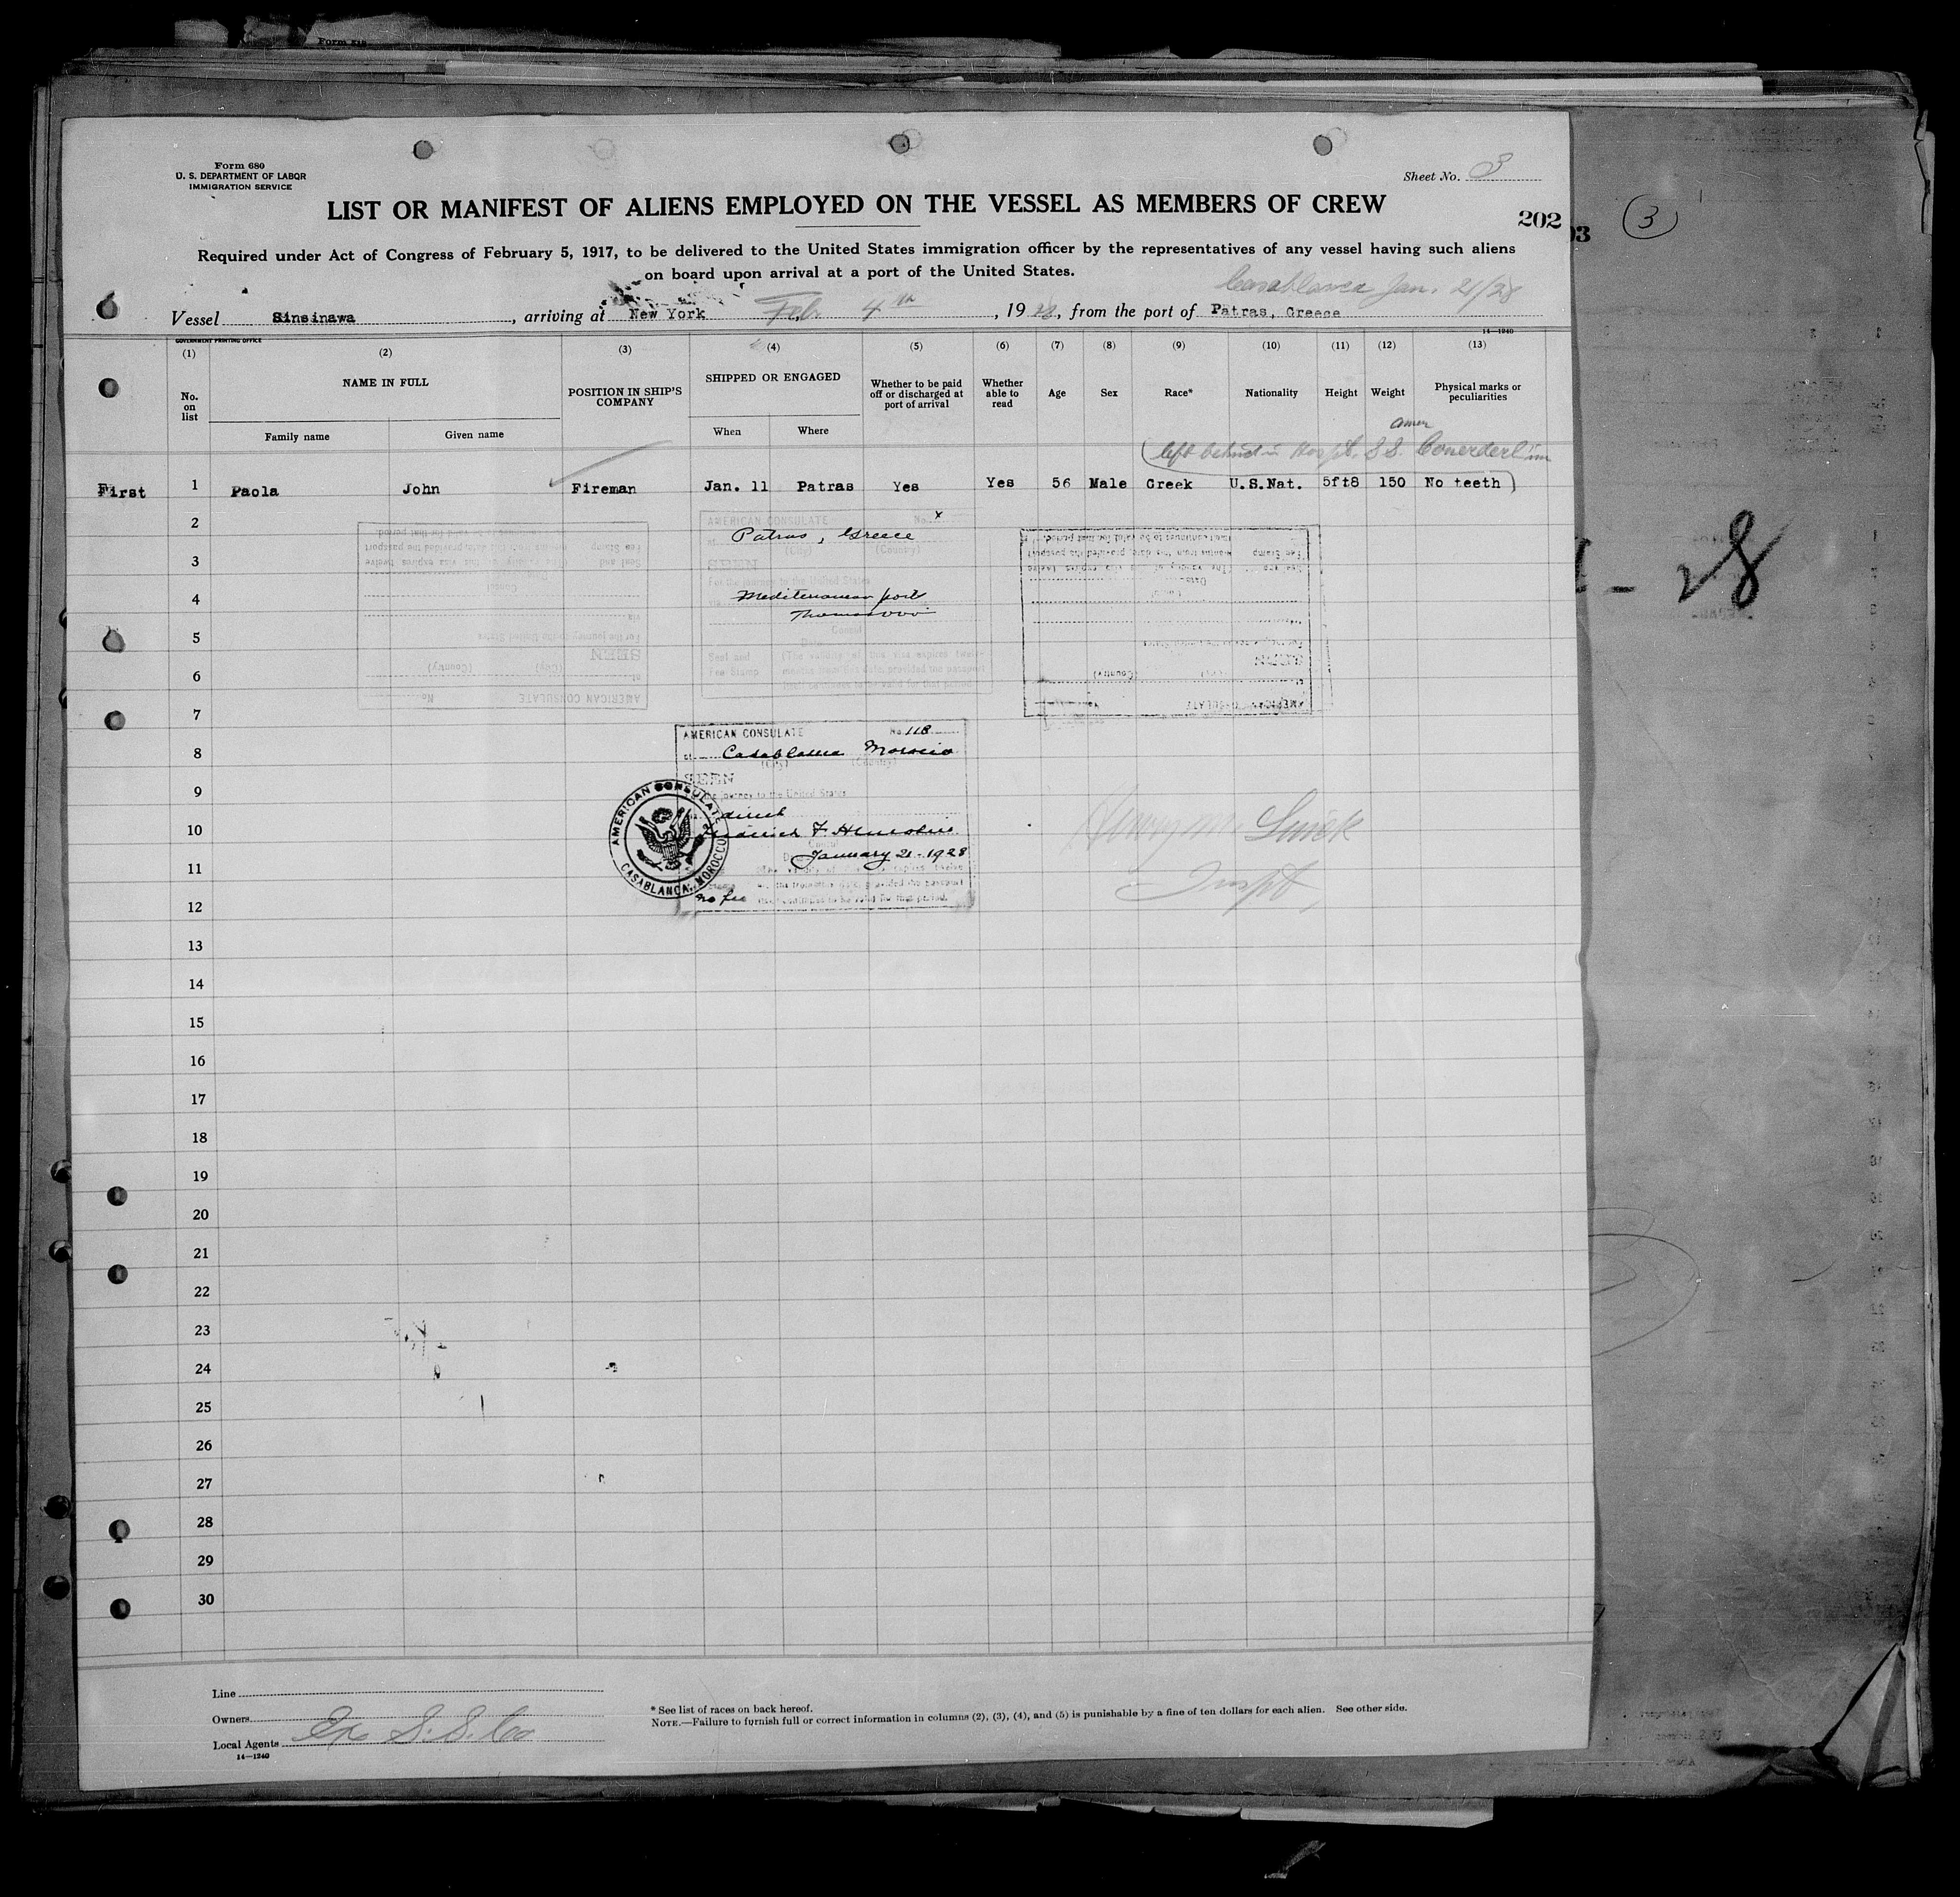 Form 680
U. S. DEPARTMENT OF LABOR
IMMIGRATION SERVICE
Sheet No. 3
LIST OR MANIFEST OF ALIENS EMPLOYED ON THE VESSEL AS MEMBERS OF CREW
202
93
3
Required under Act of Congress of February 5, 1917, to be delivered to the United States immigration officer by the representatives of any vessel having such aliens
on board upon arrival at a port of the United States.
Casablanca Jan. 21/28
Vessel Sinsinawa, arriving at New York Feb 4th, 1928, from the port of Patras, Greece
GOVERNMENT PRINTING OFFICE
14—1240
(1) (2) (3) (4) (5) (6) (7) (8) (9) (10) (11) (12) (13)
No. on list NAME IN FULL POSITION IN SHIP'S COMPANY SHIPPED OR ENGAGED Whether to be paid off or discharged at port of arrival Whether able to read Age Sex Race* Nationality Height Weight Physical marks or peculiarities
Family name Given name When Where
Amer
left behind in Hospt. S.S.
First 1 Paola John Fireman Jan. 11 Patras Yes Yes 56 Male Greek U.S.Nat. 5ft8 150 No teeth
2
AMERICAN CONSULATE No. x
Patras, Greece
(City) (Country)
3
SEEN
For the journey to the United States
4
Mediterranean port
5
Consul
Date
6
Seal and Fee Stamp (The validity of this visa expires twelve months from this date, provided the passport itself continues to be valid for that period.)
7
AMERICAN CONSULATE No. 118
8
at Casablanca Morocco
(City) (Country)
SEEN
9
the journey to the United States
AMERICAN CONSULATE
CASABLANCA, MOROCCO
direct
10
Consul
January 21-1928
11
12
no fee
Henry M. Smick
Inspt,
13
14
15
16
17
18
19
20
21
22
23
24
25
26
27
28
29
30
- 28
Line
Owners
Local Agents Ex S.S. Co
14—1240
* See list of races on back hereof.
NOTE.—Failure to furnish full or correct information in columns (2), (3), (4), and (5) is punishable by a fine of ten dollars for each alien. See other side.